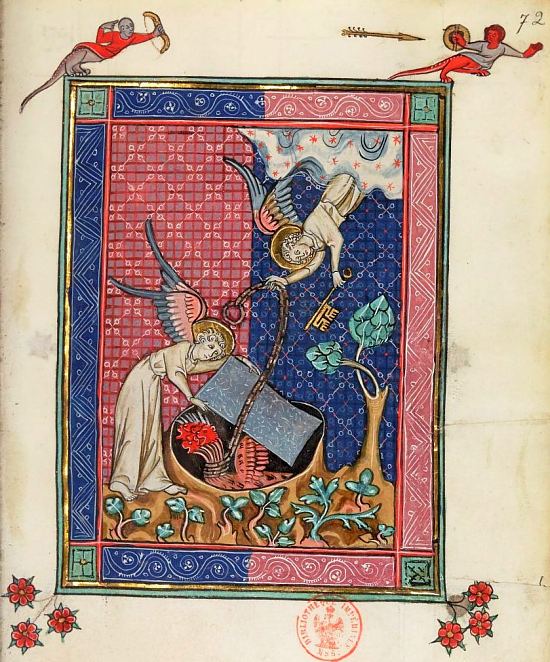 72
BIBLIOTHÈQUE IMPÉRIALE